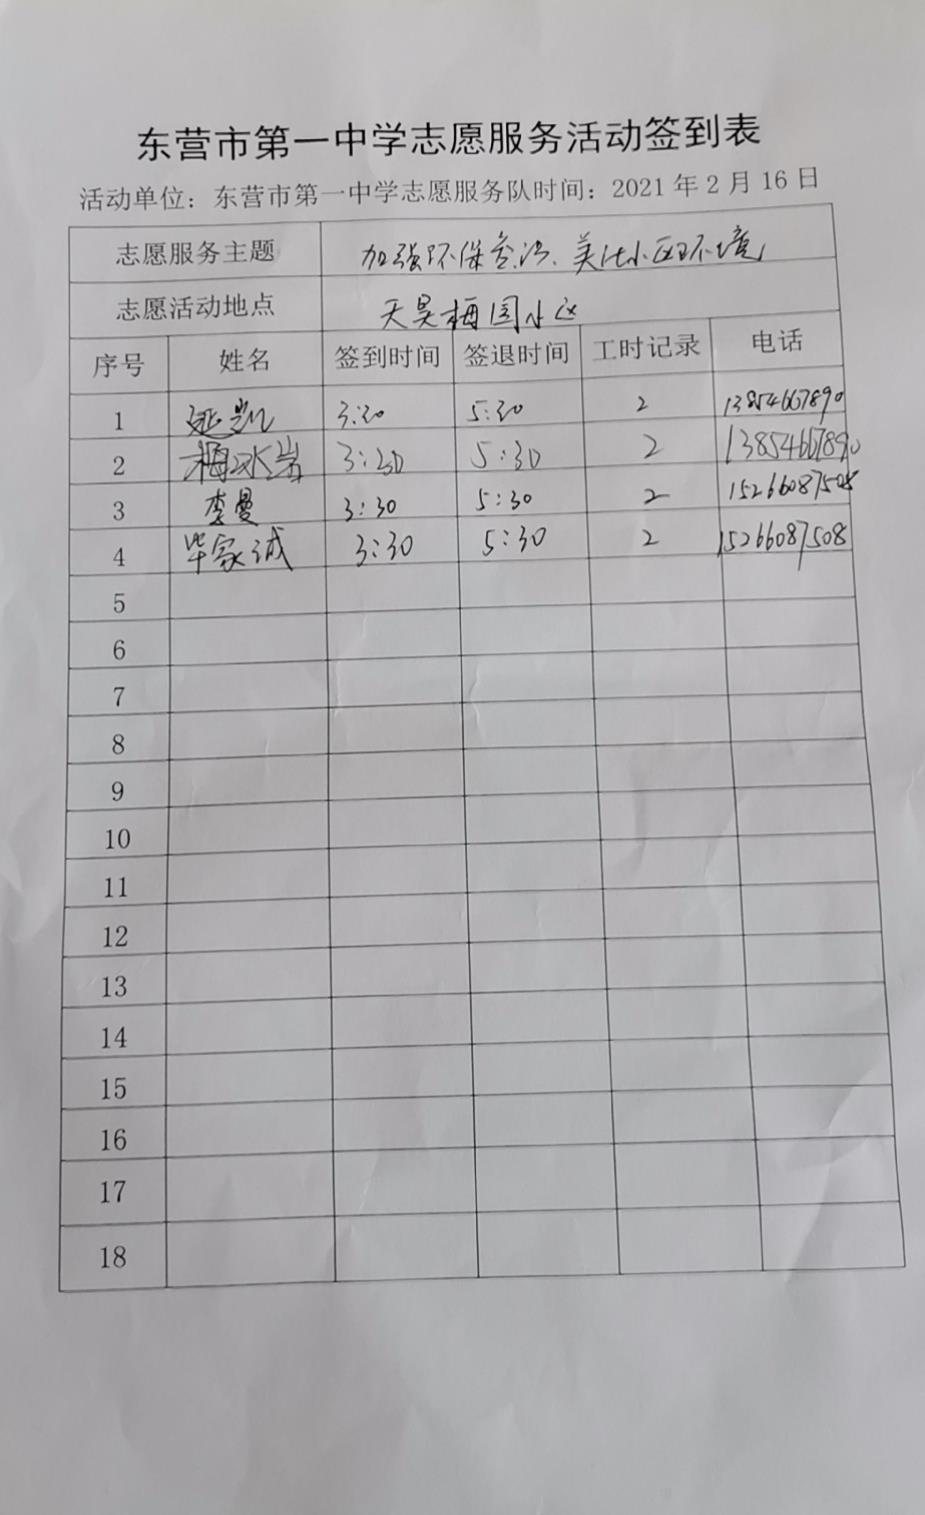 东营市第一中学志愿服务活动签到表
活动单位：东营市第一中学志愿服务队时间：2021年2月16日
志愿服务主题 加强环保意识、美化小区环境
志愿活动地点 天昊梅园小区
序号 姓名 签到时间 签退时间 工时记录 电话
1 3:30 5:30 2 13854667890
2 梅冰岩 3:30 5:30 2 13854667890
3 李曼 3:30 5:30 2 15266087508
4 毕家诚 3:30 5:30 2 15266087508
5
6
7
8
9
10
11
12
13
14
15
16
17
18